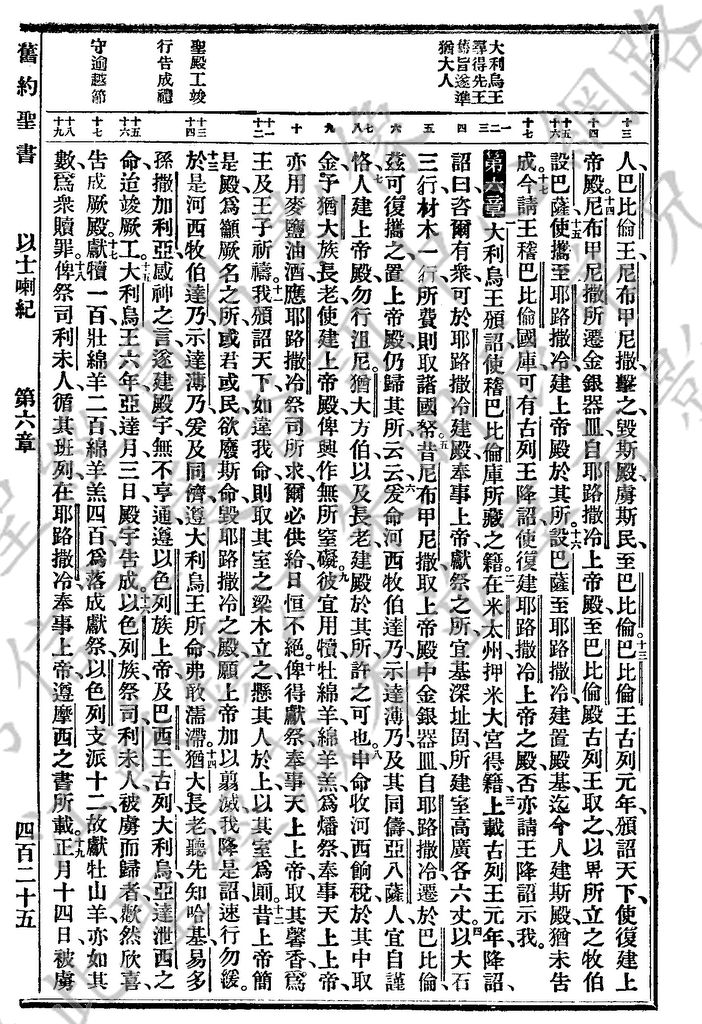 大利烏王
尋得先王
舊旨遂準
猶大人
聖殿工竣
行告成禮
守逾越節
十三
十四
十五
十六
十七
一
二
三
四
五
六
七
八
九
十
十一
十二
十三
十四
十五
十六
十七
十八
十九
人、巴比倫王尼布甲尼撒擊之、毀斯殿、虜斯民、至巴比倫。十三巴比倫王古列元年、頒詔天下、使復建上
帝殿。十四尼布甲尼撒所遷金銀器皿、自耶路撒冷上帝殿、至巴比倫殿、古列王取之、以畀所立之牧伯
設巴薩、十五使攜至耶路撒冷、建上帝殿於其所。十六設巴薩至耶路撒冷、建置殿基、迄今人建斯殿、猶未告
成。十七今請王稽巴比倫國庫、可有古列王降詔、使復建耶路撒冷上帝之殿否、亦請王降詔示我。
第六章 一大利烏王頒詔、使稽巴比倫庫所藏之籍、二在米太州、押米大宮得籍、上載、三古列王元年降詔、
詔曰、咨爾有衆、可於耶路撒冷建殿、奉事上帝、獻祭之所、宜基深址固、所建室高廣各六丈、四以大石
三行、材木一行、所費則取諸國帑。五昔尼布甲尼撒取上帝殿中金銀器皿、自耶路撒冷遷於巴比倫、
茲可復攜之、置上帝殿、仍歸其所云云。六爰命河西牧伯達乃、示達薄乃、及其同儔亞八薩人、宜自謹
恪、七人建上帝殿、勿行沮尼、猶大方伯以及長老、建殿於其所許之可也。八申命收河西餉稅、於其中取
金、予猶大族長老、使建上帝殿、俾興作無所窒礙。九彼宜用犢牡綿羊綿羊羔爲燔祭、奉事天上上帝、
亦用麥鹽油酒、應耶路撒冷祭司所求、爾必供給、日恒不絕、十俾得獻祭、奉事天上上帝、取其馨香、爲
王及王子祈禱。十一我頒詔天下、如違我命、則取其室之梁木、立之、懸其人於上、以其室爲厠。十二昔上帝簡
是殿、爲籲厥名之所、或君或民、欲廢斯命、毀耶路撒冷之殿、願上帝加以翦滅、我降是詔、速行勿緩。
十三於是河西牧伯達乃、示達薄乃、爰及同儕、遵大利烏王所命、弗敢濡滯。十四猶大長老聽先知哈基、易多
孫撒加利亞感神之言、遂建殿宇、無不亨通、遵以色列族上帝、及巴西王古列、大利烏、亞達泄西之
命、迨竣厥工。十五大利烏王六年亞達月三日、殿宇告成。十六以色列族祭司利未人被虜而歸者、歡然欣喜、
告成厥殿、十七獻犢一百、壯綿羊二百、綿羊羔四百、爲落成獻祭、以色列支派十二、故獻牡山羊亦如其
數、爲衆贖罪。十八俾祭司利未人、循其班列、在耶路撒冷奉事上帝、遵摩西之書所載。十九正月十四日、被虜
舊約聖書
以士喇紀
第六章
四百二十五